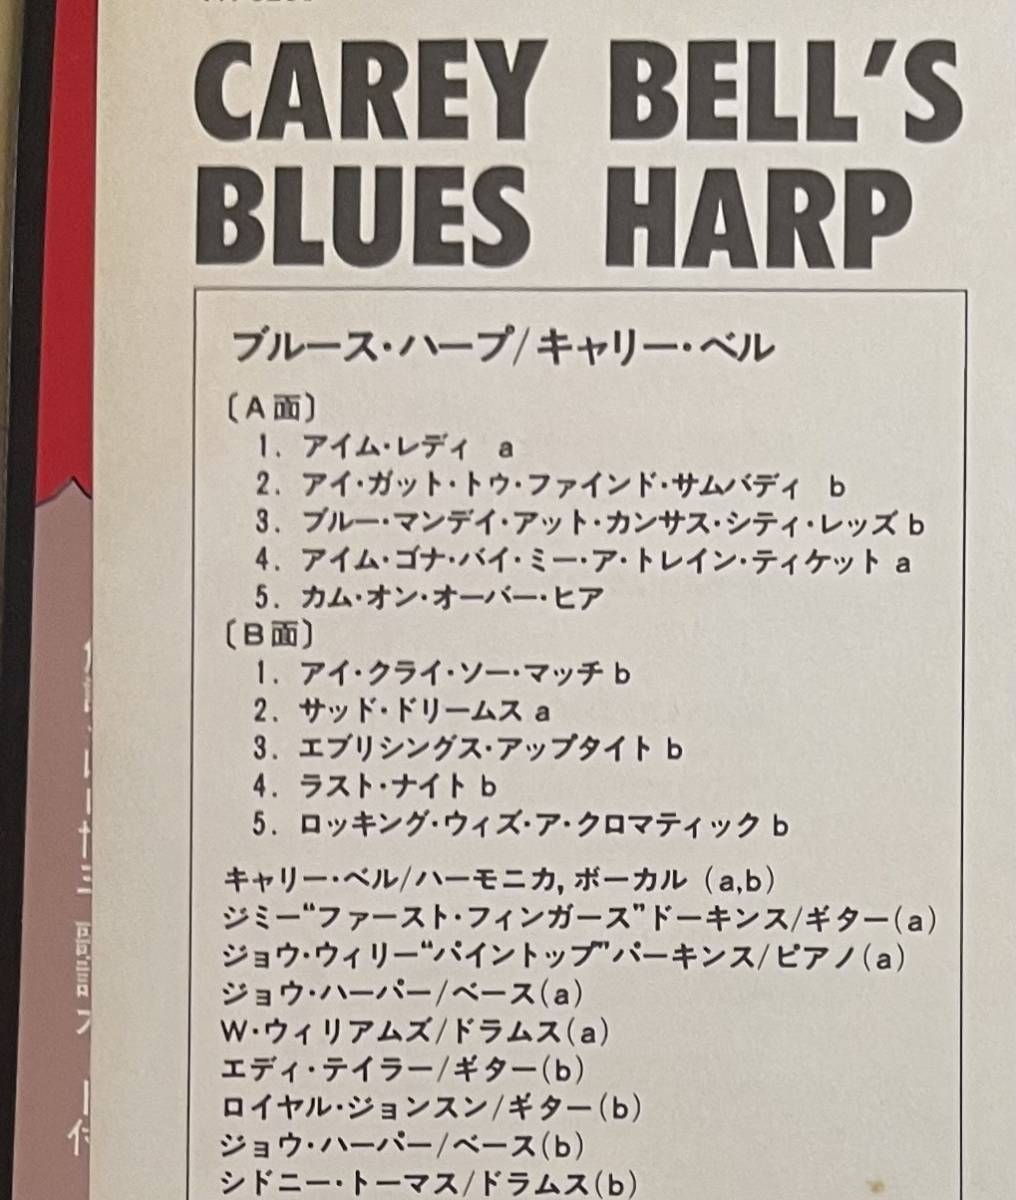 CAREY BELL'S
BLUES HARP
ブルース・ハープ/キャリー・ベル
〔A面〕
1. アイム・レディ a
2. アイ・ガット・トゥ・ファインド・サムバディ b
3. ブルー・マンデイ・アット・カンサス・シティ・レッズ b
4. アイム・ゴナ・バイ・ミー・ア・トレイン・ティケット a
5. カム・オン・オーバー・ヒア
〔B面〕
1. アイ・クライ・ソー・マッチ b
2. サッド・ドリームス a
3. エブリシングス・アップタイト b
4. ラスト・ナイト b
5. ロッキング・ウィズ・ア・クロマティック b
キャリー・ベル/ハーモニカ, ボーカル (a,b)
ジミー“ファースト・フィンガーズ”ドーキンス/ギター(a)
ジョウ・ウィリー“パイントップ”パーキンス/ピアノ(a)
ジョウ・ハーパー/ベース(a)
W・ウィリアムズ/ドラムス(a)
エディ・テイラー/ギター(b)
ロイヤル・ジョンスン/ギター(b)
ジョウ・ハーパー/ベース(b)
シドニー・トーマス/ドラムス(b)